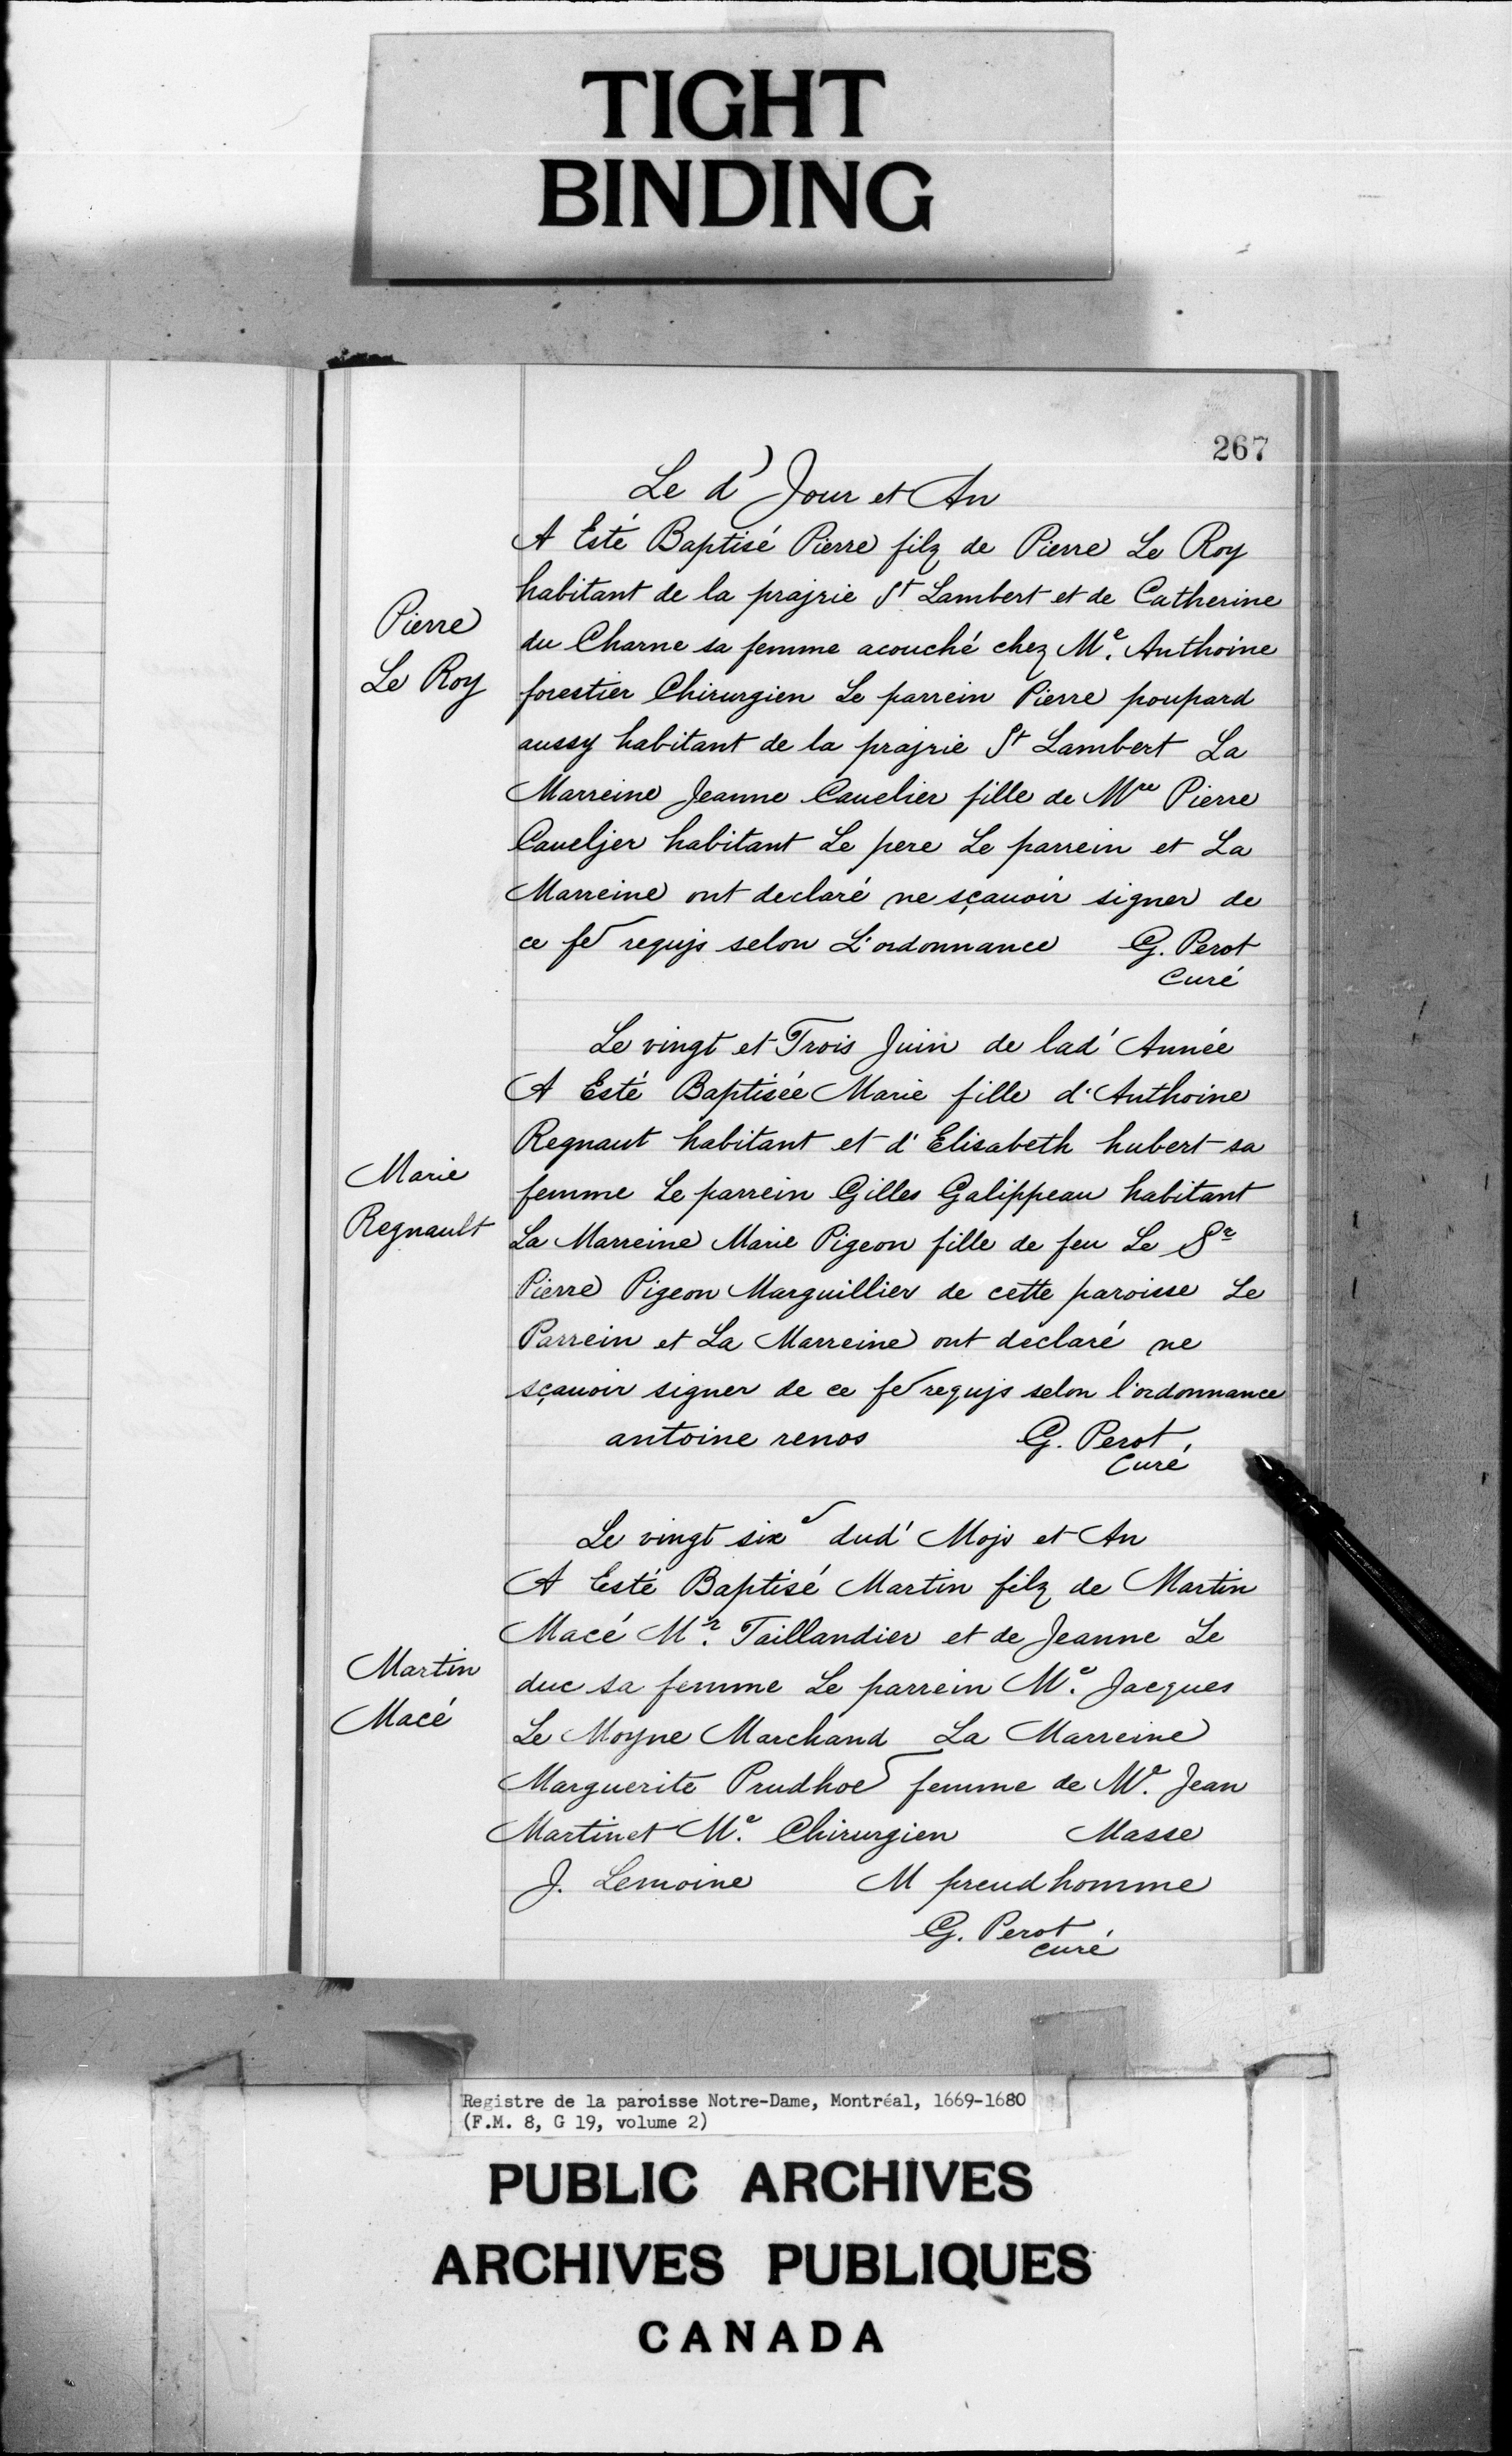 TIGHT
BINDING
267
Le d' Jour et An
A Esté Baptisé Pierre filz de Pierre Le Roy
habitant de la prajrie St Lambert et de Catherine
Pierre
du Charne sa femme acouché chez Me. Anthoine
Le Roy
forestier Chirurgien Le parrein Pierre poupard
aussy habitant de la prajrie St Lambert La
Marreine Jeanne Cauelier fille de Mre Pierre
Caueljer habitant Le pere Le parrein et La
Marreine ont declaré ne sçauoir signer de
ce fe requjs selon L'ordonnance G. Perot
Curé
Le vingt et Trois Juin de lad' Année
A Esté Baptisée Marie fille d'Anthoine
Regnaut habitant et d'Elisabeth hubert sa
Marie
femme Le parrein Gilles Galippeau habitant
Regnault
La Marreine Marie Pigeon fille de feu Le Sr
Pierre Pigeon Marguillier de cette paroisse Le
Parrein et La Marreine ont declaré ne
sçauoir signer de ce fe requjs selon l'ordonnance
antoine renos G. Perot
Curé
Le vingt sixe dud' Mojs et An
A Esté Baptisé Martin filz de Martin
Macé Mr. Taillandier et de Jeanne Le
Martin
duc sa femme Le parrein Me. Jacques
Macé
Le Moyne Marchand La Marreine
Marguerite Prudhoe femme de Me. Jean
Martinet Me. Chirurgien Masse
J. Lemoine M preudhomme
G. Perot
curé
Registre de la paroisse Notre-Dame, Montréal, 1669-1680
(F.M. 8, G 19, volume 2)
PUBLIC ARCHIVES
ARCHIVES PUBLIQUES
CANADA